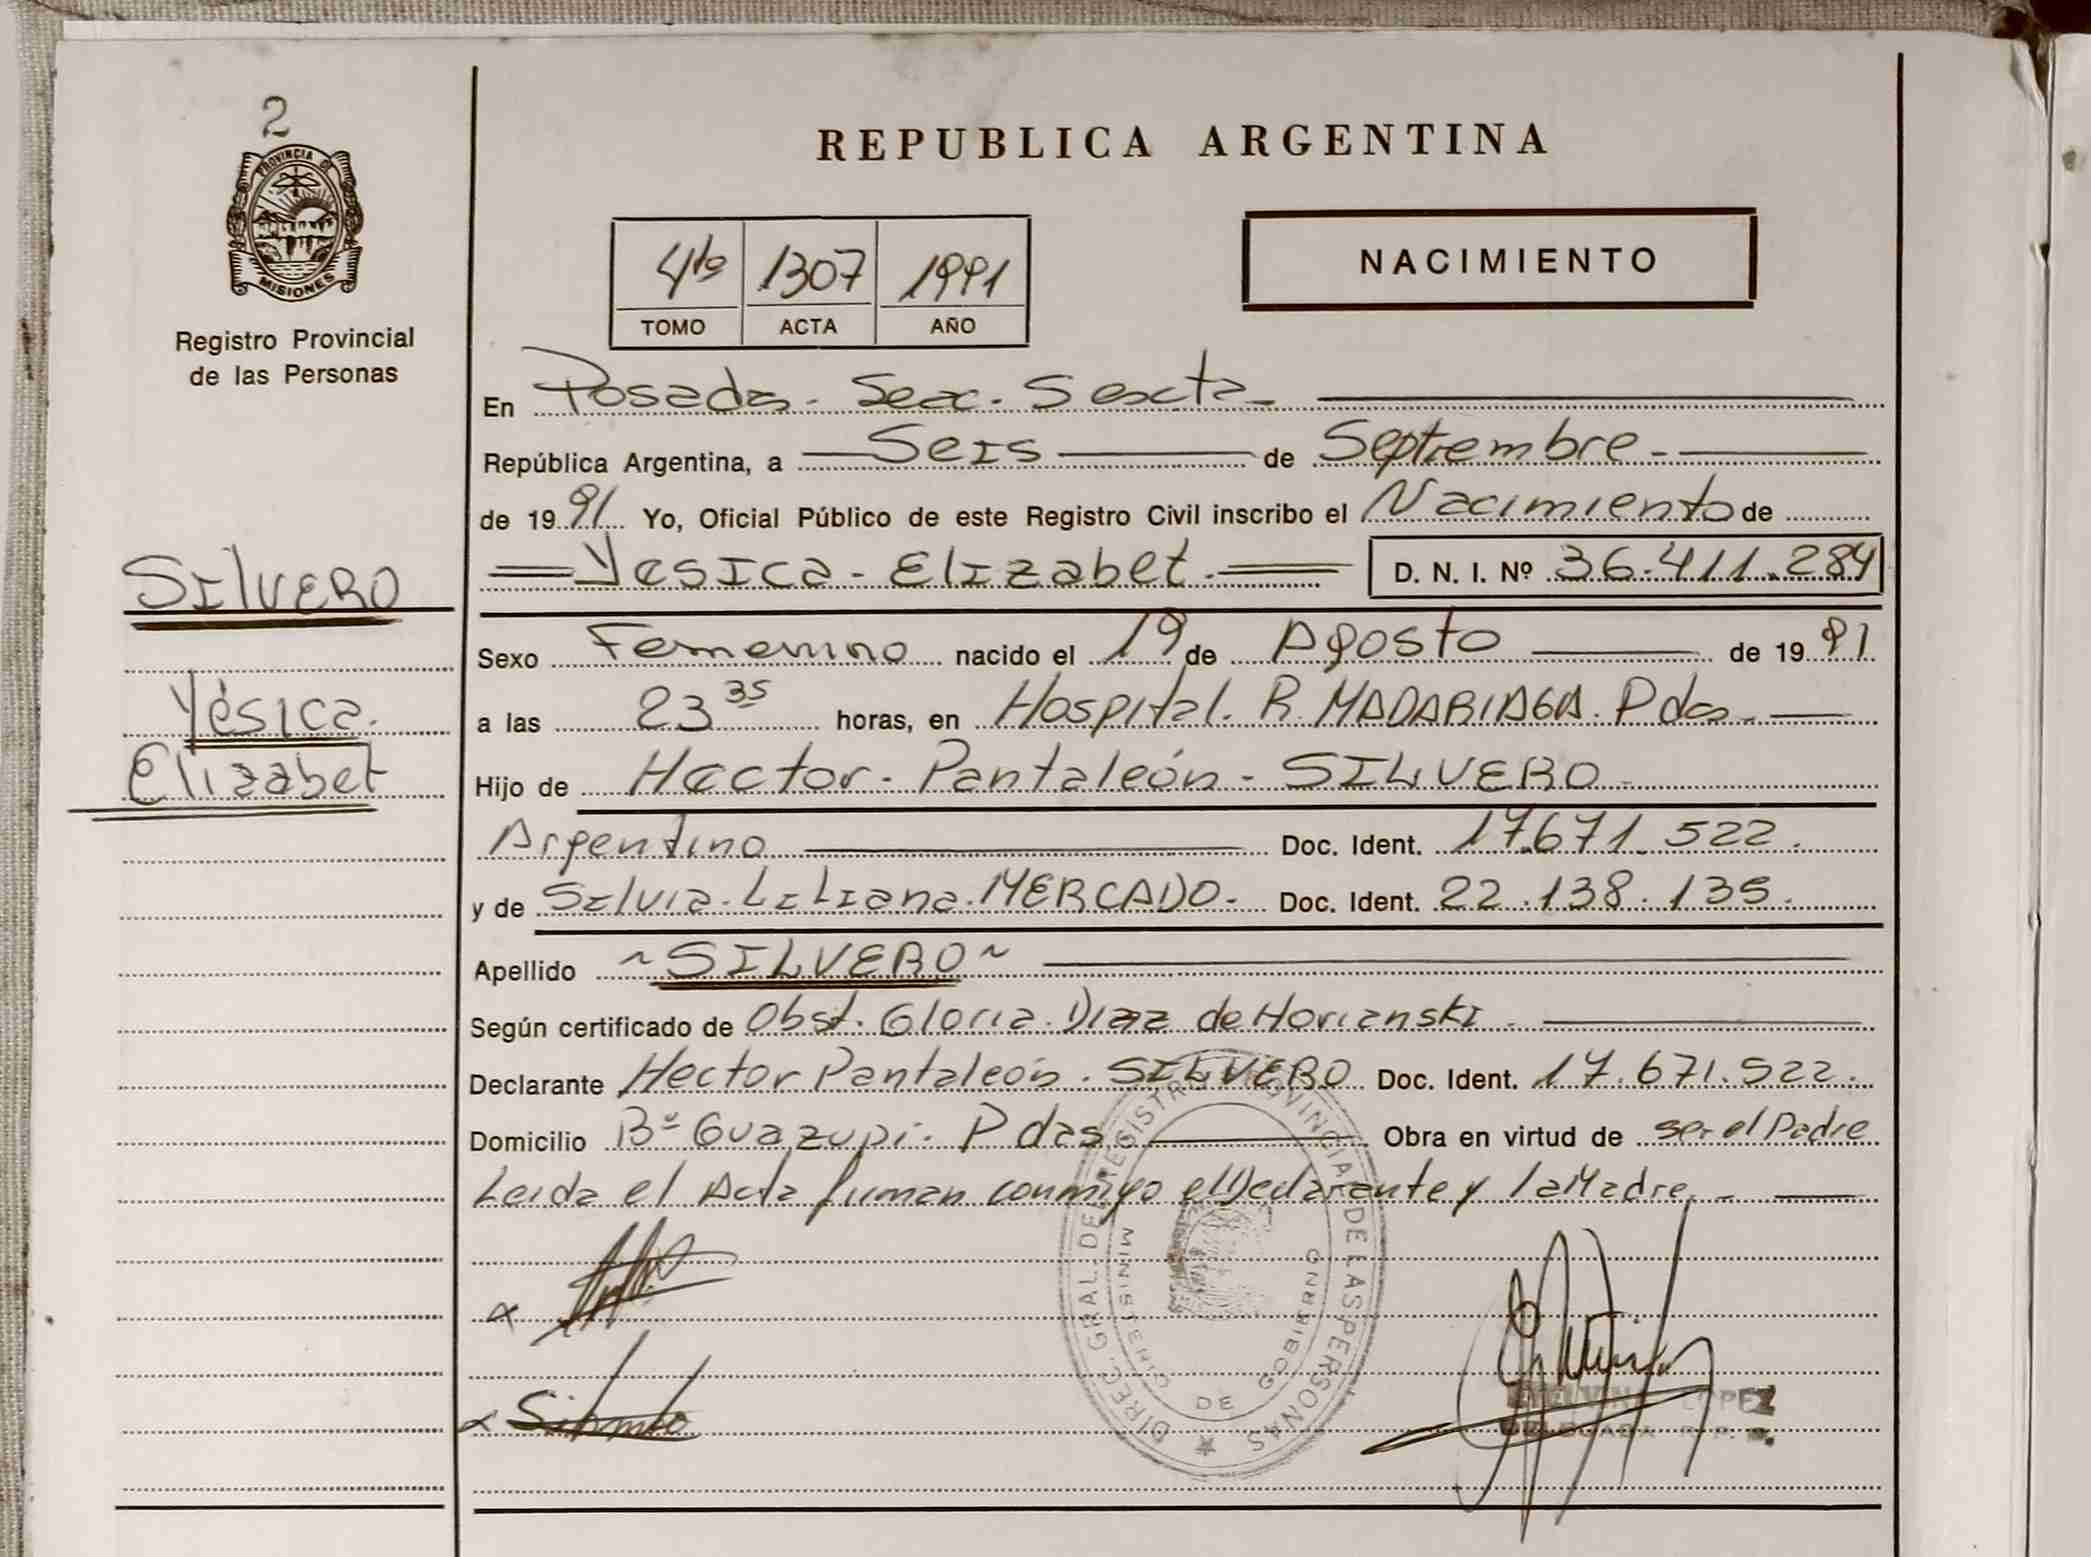 2
PROVINCIA DE
MISIONES
Registro Provincial
de las Personas
SILVERO
Yésica.
Elizabet
REPUBLICA ARGENTINA
4to 1307 1991
TOMO ACTA AÑO
NACIMIENTO
En Posadas. Secc. Sexta
República Argentina, a Seis de Septiembre
de 1991 Yo, Oficial Público de este Registro Civil inscribo el Nacimiento de
Yesica - Elizabet. D. N. I. Nº 36.411.284
Sexo Femenino nacido el 19 de Agosto de 1991
a las 23 35 horas, en Hospital. R. MADARIAGA. Pdas.
Hijo de Hector - Pantaleón - SILVERO
Argentino Doc. Ident. 17.671.522.
y de Silvia. Liliana. MERCADO. Doc. Ident. 22.138.135.
Apellido ~SILVERO~
Según certificado de Obst. Gloria. Diaz de Horianski.
Declarante Hector Pantaleón. SILVERO Doc. Ident. 17.671.522.
Domicilio Bº Guazupi. Pdas Obra en virtud de ser el Padre
Leida el Acta firman conmigo el Declarante y la Madre.
DIREC. GRAL. DEL REGISTRO PROVINCIAL DE LAS PERSONAS
MINISTERIO DE GOBIERNO
LOPEZ
DELEGADA R. P.